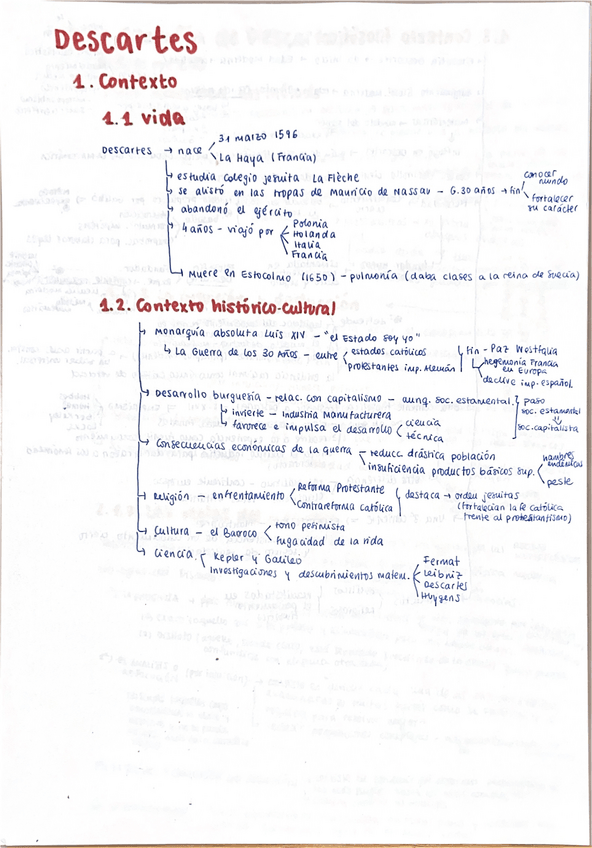 Descartes
1. Contexto
1.1 vida
Descartes → nace
31 marzo 1596
La Haya (Francia)
estudia colegio jesuita La Flèche
se alistó en las tropas de Mauricio de Nassau - G.30 años → fin
conocer mundo
fortalecer su carácter
abandonó el ejército
4 años - viajó por
Polonia
Holanda
Italia
Francia
Muere en Estocolmo (1650) - pulmonía (daba clases a la reina de Suecia)
1.2. Contexto histórico-cultural
Monarquía absoluta Luis XIV - "el Estado soy yo"
↳ La Guerra de los 30 Años - entre
estados católicos
protestantes imp. Alemán
fin - Paz Westfalia
hegemonía Francia en Europa
declive imp. español
Desarrollo burguesía - relac. con capitalismo - aunq. soc. estamental.
invierte - Industria manufacturera
favorece e impulsa el desarrollo
ciencia
técnica
paso
soc. estamental
⇓
soc. capitalista
Consecuencias económicas de la guerra
reducc. drástica población
insuficiencia productos básicos sup.
hambres
peste
Religión - enfrentamiento
Reforma Protestante
Contrarreforma Católica
destaca → orden jesuitas
(fortalecían la fe católica
frente al protestantismo)
Cultura - el Barroco
tono pesimista
fugacidad de la vida
Ciencia
Kepler y Galileo
Investigaciones y descubrimientos matem.
Fermat
Leibniz
Descartes
Huygens